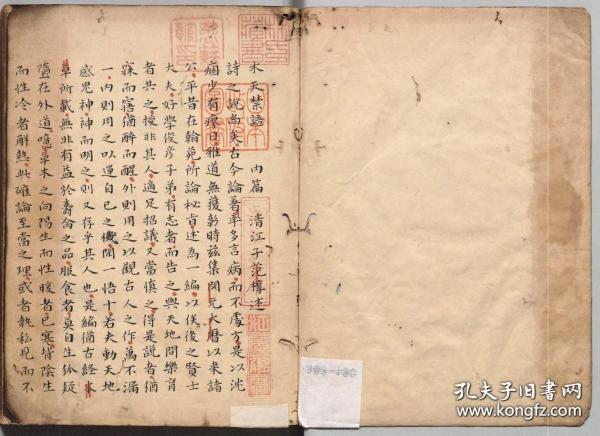 木天禁語 内篇 清江子范梈述
詩之說尚矣古今論著率多言病而不處方是以沈
痼少有瘳日雅道無復彰時茲集開元大曆以來諸
公平昔在翰苑所論秘旨述為一編以俟後之賢士
大夫好學俊彥子弟有志者而告之與天地間樂育
者共之授非其人適足招議又當慎之得是說者猶
寐而寤猶醉而醒外則用之以觀古人之作萬不漏
一内則用之以運自己之機開一悟十若夫動天地
感鬼神神而明之則又存乎其人也是編猶古經
草所載無非有益於壽命之品服食者莫自生狐疑
墮在外道噫草木之向陽生而性暖者已寒背陰生
而性冷者解熱此確論至當之理或者執私見而不
383-180
孔夫子旧书网
www.kongfz.com